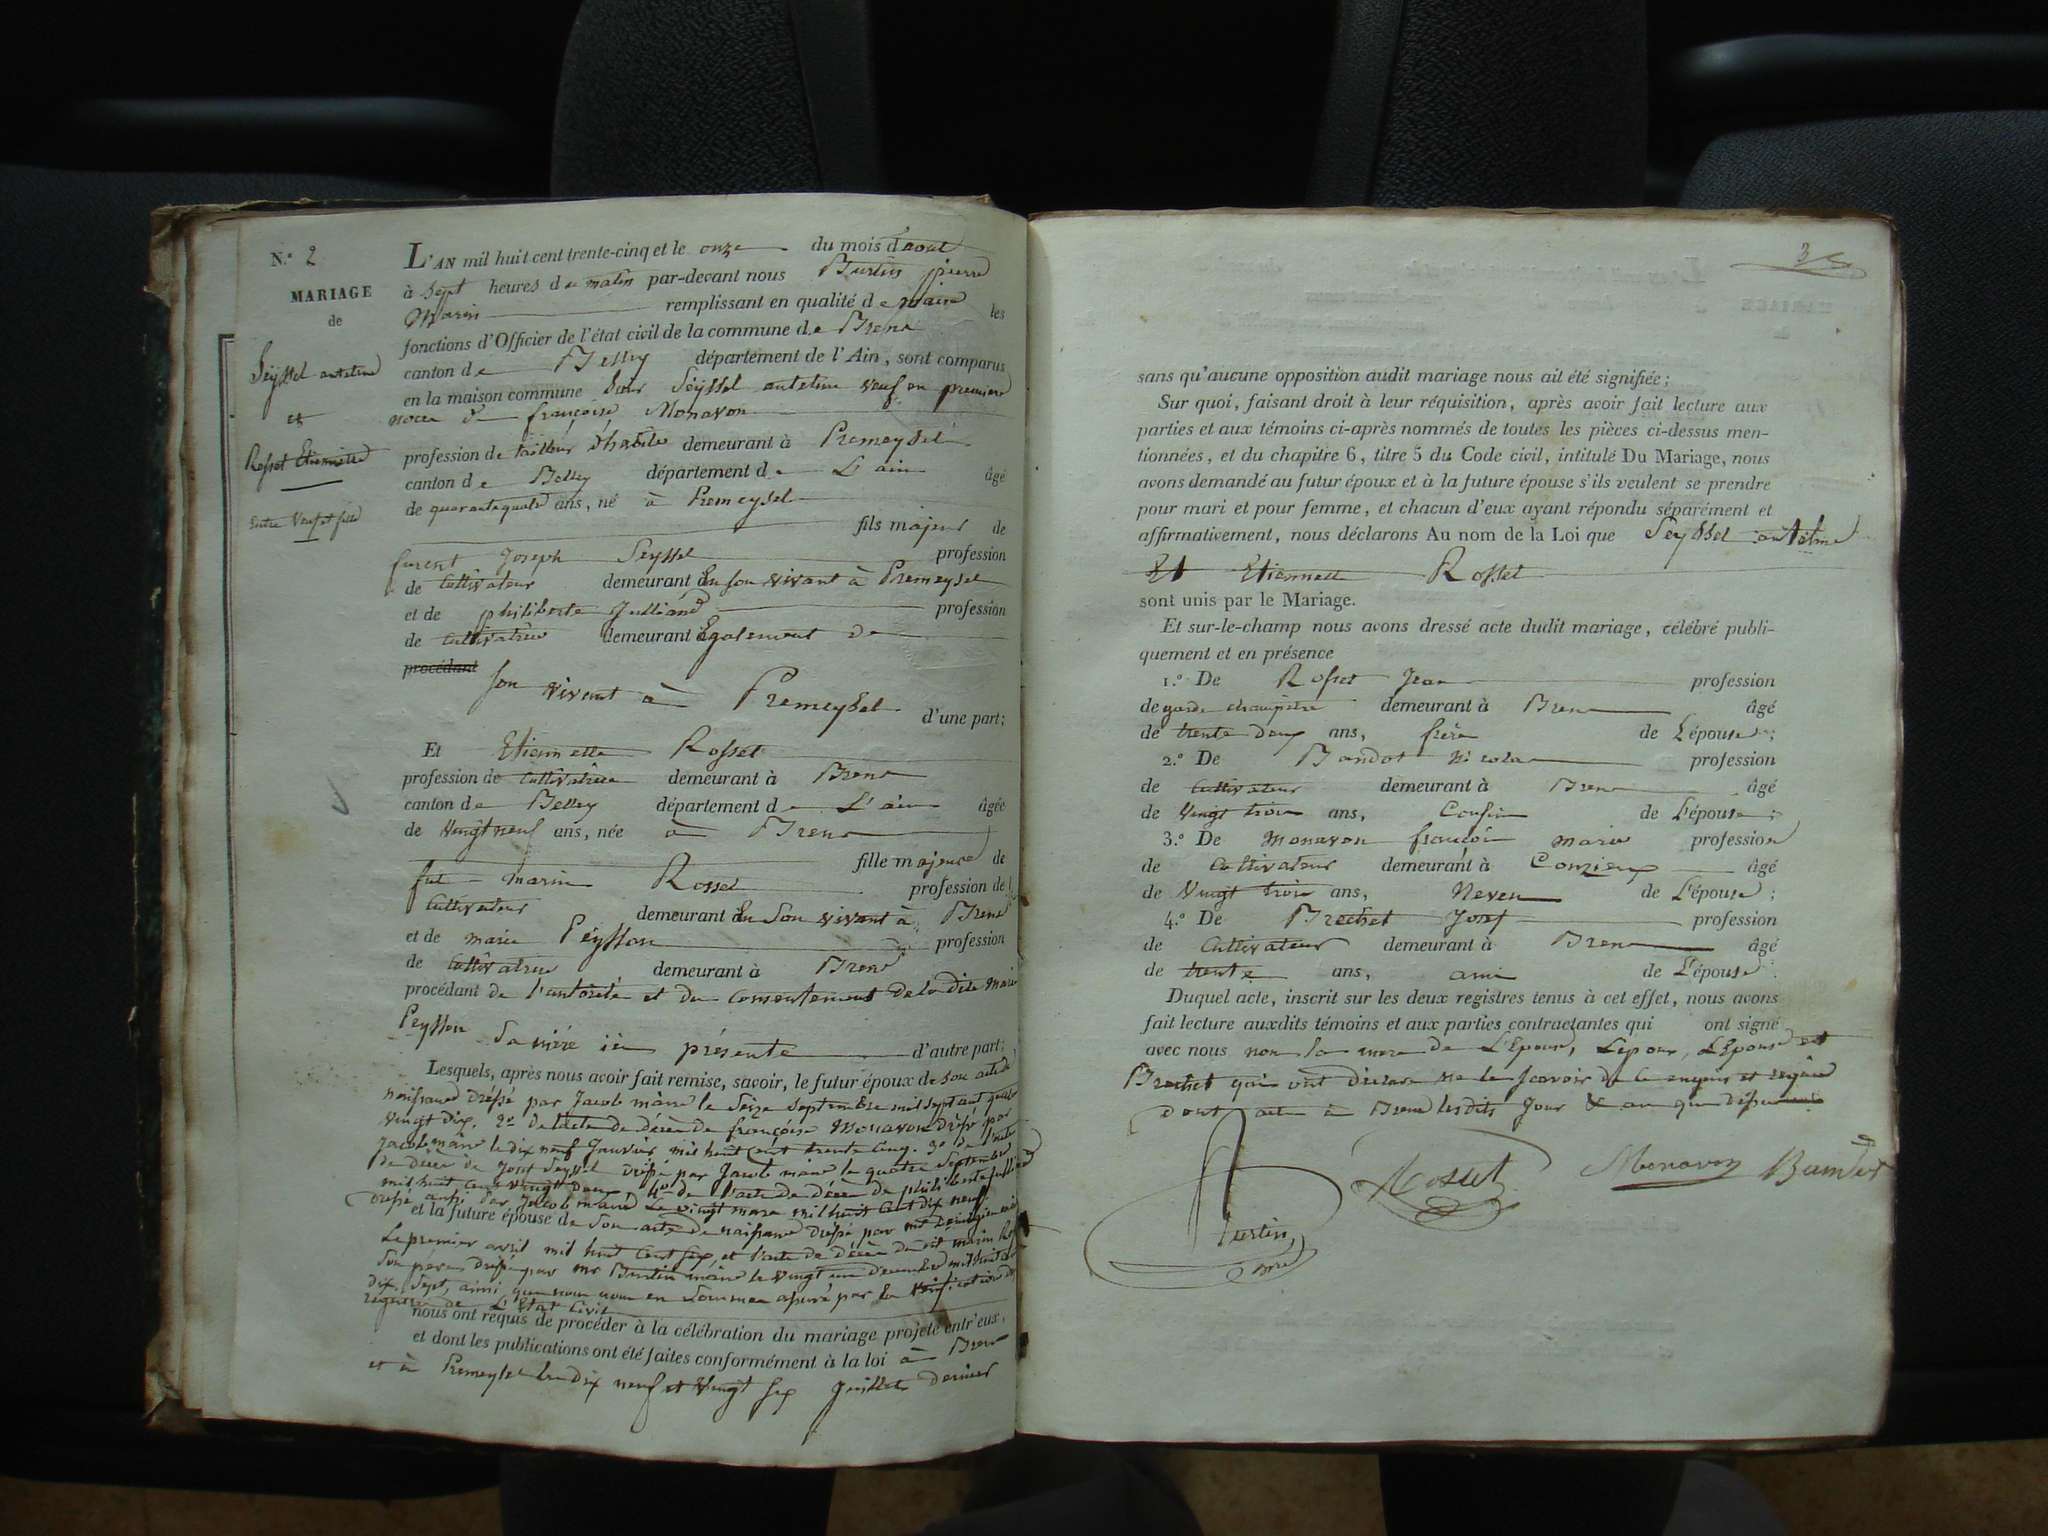 N.º 2
MARIAGE
de
Seyssel antelme
et
Rosset Etiennette
Entre Veuf et fille
L'AN mil huit cent trente-cinq et le onze du mois d'aout
à sept heures du matin par-devant nous Burtin pierre
Marin remplissant en qualité de maire les
fonctions d'Officier de l'état civil de la commune de Brens
canton de Belley département de l'Ain, sont comparus
en la maison commune Seyssel antelme veuf en premiere
noce de françoise Monavon
profession de tailleur d'habits demeurant à Premeysel
canton de Belley département de L'ain âgé
de quarantequatre ans, né à Premeysel
fils majeur de
furent Joseph Seyssel profession
de Cultivateur demeurant En son vivant à Premeysel
et de philiberte Julliand profession
de Cultivatrice demeurant Egalement de
procédant
son vivant à Premeysel d'une part;
Et Etiennette Rosset
profession de Cultivatrice demeurant à Brens
canton de Belley département de L'ain âgée
de Vingt neuf ans, née à Brens
fille majeure de
fut marin Rosset profession de
Cultivateur demeurant En Son vivant à Brens
et de marie Peysson profession
de Cultivatrice demeurant à Brens
procédant de l'autorité et du Consentement de la dite marie
Peysson Sa mère ici présente d'autre part;
Lesquels, après nous avoir fait remise, savoir, le futur époux de son acte de
naissance dréssé par Jacob maire le Seize Septembre mil sept cent quatre
vingt dix. 2º de l'acte de décès de françoise Monavon dréssé par
Jacob maire le dix neuf Janvier mil huit cent trente Cinq. 3º de l'acte
de décès de Josef Seyssel dréssé par Jacob maire le quatre Septembre
mil huit Cent vingt deux 4º de l'acte de décès de philiberte Julliand
dréssé aussi par Jacob maire Le vingt mars mil huit Cent dix neuf
et la future épouse de Son acte de naissance dréssé par mr
Le premier avril mil huit Cent six, et l'acte de décès du dit marin
Son père dréssé par mr Burtin maire le vingt un décembre mil huit
dix Sept, ainsi que nous nous en Sommes assuré par la vérification des
registres de L'Etat Civil
nous ont requis de procéder à la célébration du mariage projeté entr'eux,
et dont les publications ont été faites conformément à la loi à Brens
et à Premeysel les dix neuf et Vingt six Juillet dernier
3
sans qu'aucune opposition audit mariage nous ait été signifiée;
Sur quoi, faisant droit à leur réquisition, après avoir fait lecture aux
parties et aux témoins ci-après nommés de toutes les pièces ci-dessus men-
tionnées, et du chapitre 6, titre 5 du Code civil, intitulé Du Mariage, nous
avons demandé au futur époux et à la future épouse s'ils veulent se prendre
pour mari et pour femme, et chacun d'eux ayant répondu séparément et
affirmativement, nous déclarons Au nom de la Loi que Seyssel antelme
Et Etiennette Rosset
sont unis par le Mariage.
Et sur-le-champ nous avons dressé acte dudit mariage, célébré publi-
quement et en présence
1.º De Rosset Jean profession
de garde champêtre demeurant à Brens âgé
de trente deux ans, frère de L'épouse;
2.º De Baudot Nicolas profession
de Cultivateur demeurant à Brens âgé
de Vingt trois ans, Cousin de L'épouse;
3.º De Monavon françois marie profession
de Cultivateur demeurant à Conzieux âgé
de Vingt trois ans, Neveu de L'épouse;
4.º De Brechet Josef profession
de Cultivateur demeurant à Brens âgé
de trente ans, ami de L'épouse
Duquel acte, inscrit sur les deux registres tenus à cet effet, nous avons
fait lecture auxdits témoins et aux parties contractantes qui ont signé
avec nous non la mere de L'Epouse, L'epoux, L'Epouse et
Brechet qui ont déclaré ne le scavoir de ce enquis et requis
dont acte à Brens lesdits Jour & an que dessus
Burtin
mre
Rosset
Monavon
Baudot